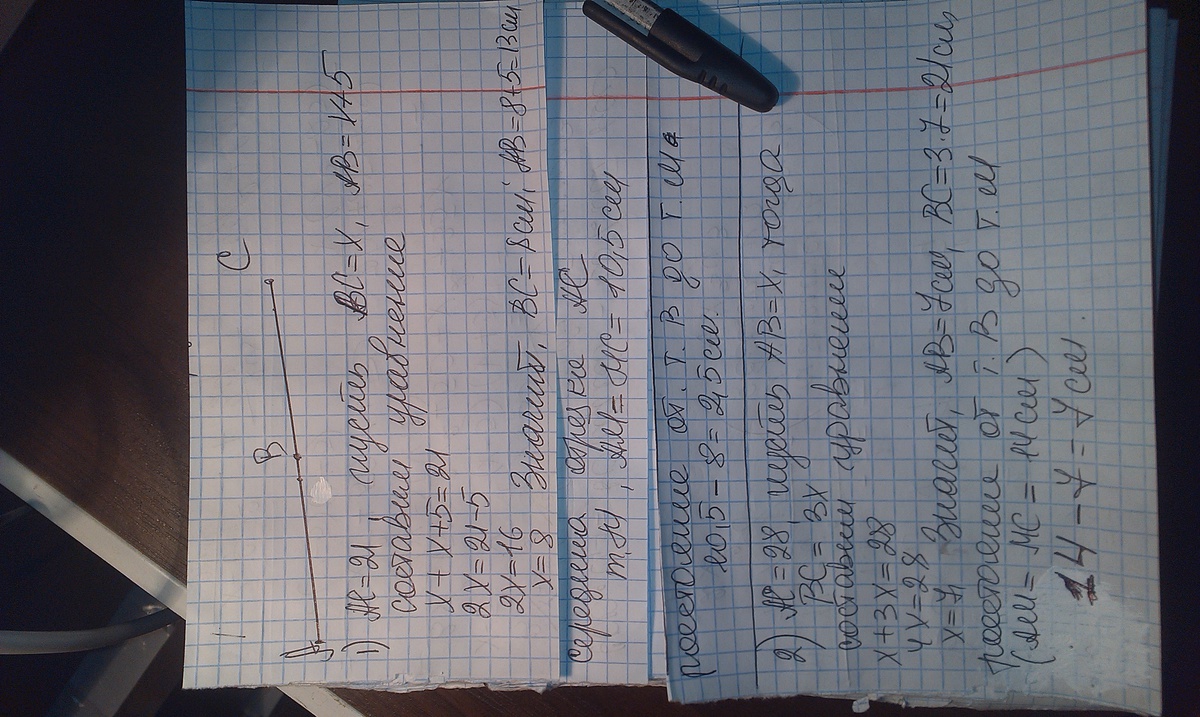 A B C
1) AC=21 пусть BC=x, AB=x+5
составим уравнение
x + x+5=21
2x=21-5
2x=16
x=8 Значит, BC=8см, AB=8+5=13см
середина отрезка AC
т.М, AM=MC=10,5см
расстояние от т.В до т.М
10,5-8=2,5см.
2) AC=28, пусть AB=x, тогда
BC=3x
составим уравнение
x+3x=28
4x=28
x=7 Значит, AB=7см, BC=3·7=21см
расстояние от т.В до т.М
(AM=MC=14см)
14-7=7см